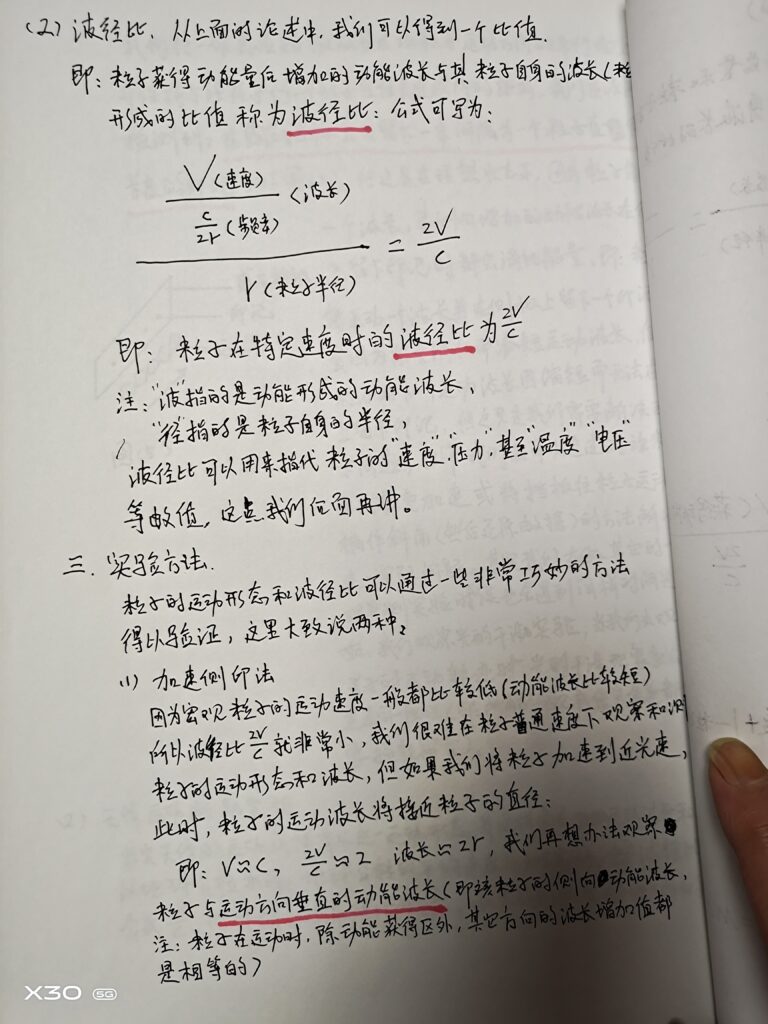 (2) 波径比. 从上面的论述中, 我们可以得到一个比值.
即: 粒子获得动能量后增加的动能波长与其粒子自身的波长(粒
形成的比值称为波径比: 公式可写为:
V(速度)
c/2r (频率) (波长)
r (粒子半径) = 2V/C
即: 粒子在特定速度时的波径比为 2V/C
注: "波"指的是动能形成的动能波长,
"径"指的是粒子自身的半径,
波径比可以用来指代粒子的"速度","压力",甚至"温度""电压"
等数值, 这点我们后面再讲。
三. 实验方法.
粒子的运动形态和波径比可以通过一些非常巧妙的方法
得以验证, 这里大致说两种:
(1) 加速侧印法
因为宏观粒子的运动速度一般都比较低(动能波长比较短)
所以波径比 2V/C 就非常小, 我们很难在粒子普通速度下观察和测
粒子的运动形态和波长, 但如果我们将粒子加速到近光速,
此时, 粒子的运动波长将接近粒子的直径:
即: V≈C, 2V/C≈2 波长≈2r, 我们再想办法观察
粒子与运动方向垂直的动能波长(即该粒子的侧向动能波长,
注: 粒子在运动时, 除动能获得区外, 其它方向的波长增加值都
是相等的)
X30 5G